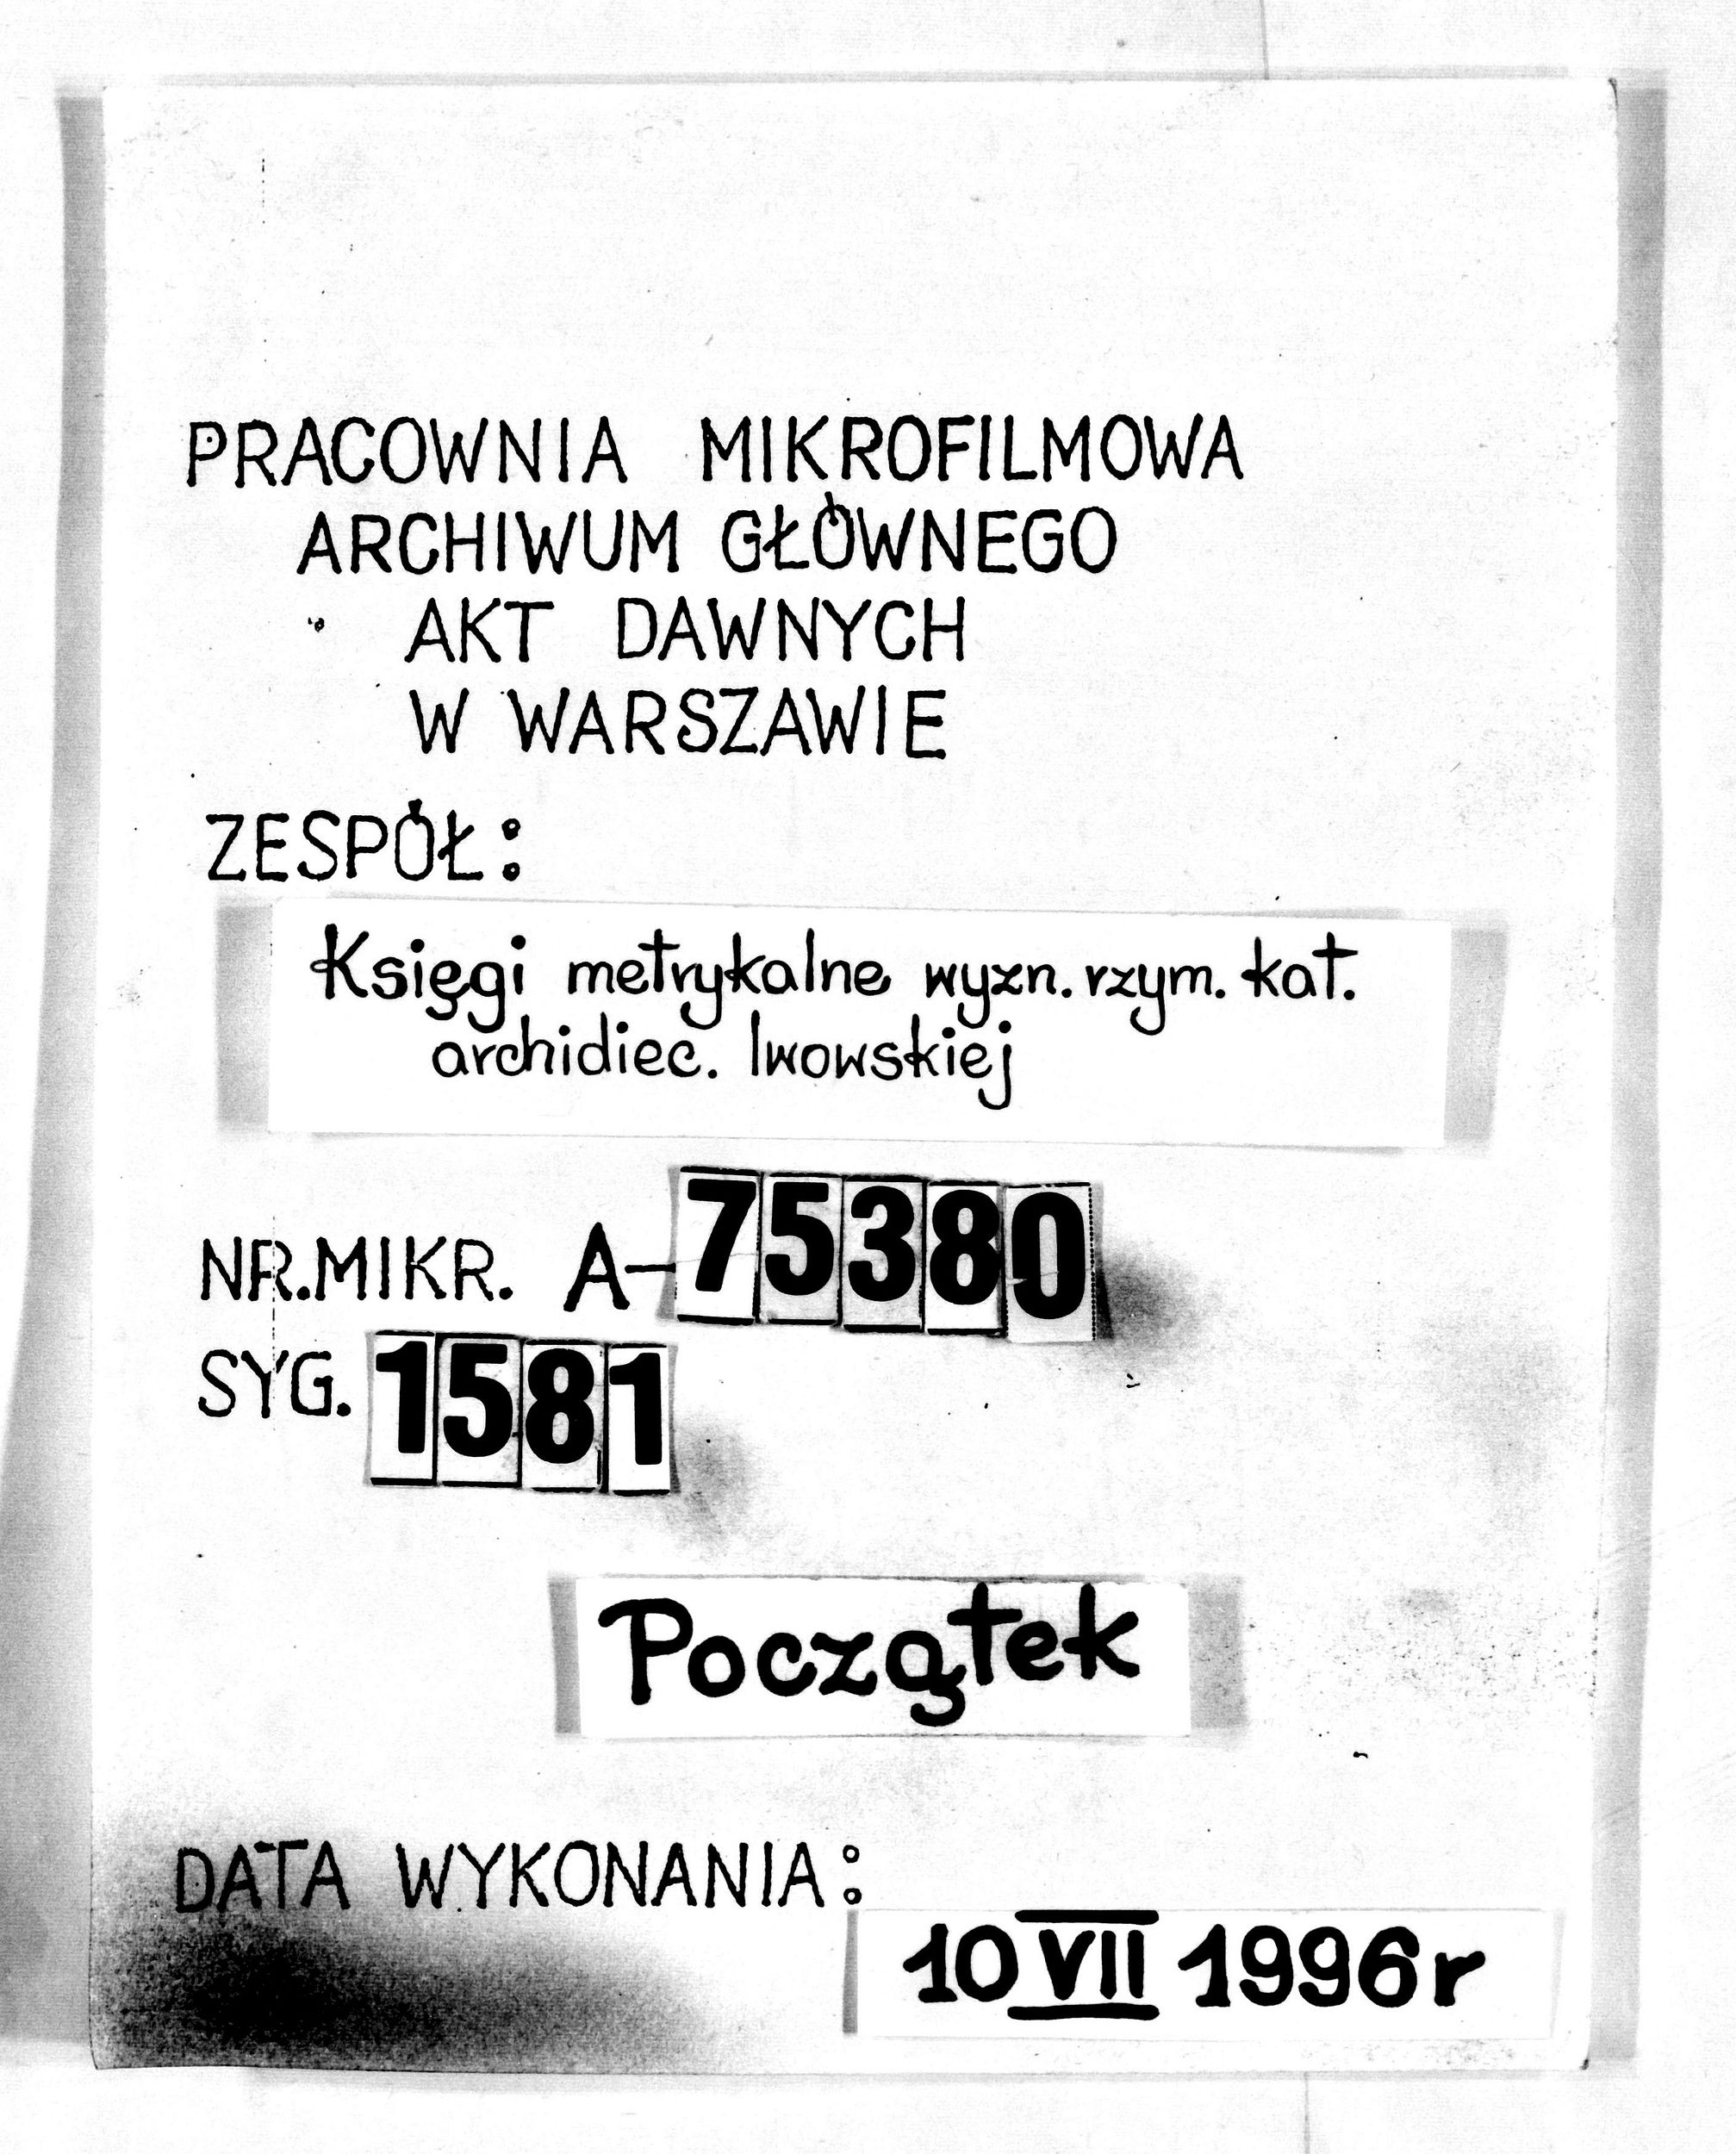 PRACOWNIA MIKROFILMOWA
ARCHIWUM GŁÓWNEGO
AKT DAWNYCH
W WARSZAWIE
ZESPÓŁ:
Księgi metrykalne wyzn. rzym. kat.
archidiec. lwowskiej
NR.MIKR. A-75380
SYG. 1581
Początek
DATA WYKONANIA:
10 VII 1996r